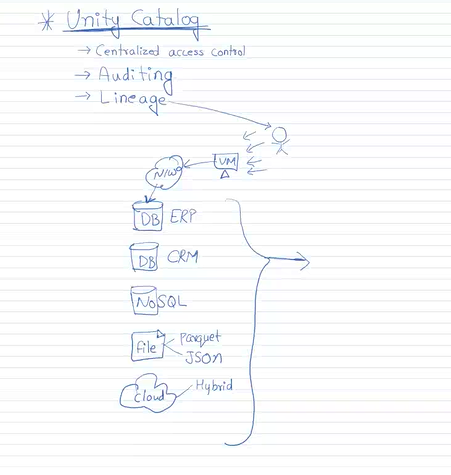 * Unity Catalog
→ Centralized access control
→ Auditing
→ Lineage
VM
N/W
DB ERP
DB CRM
NoSQL
File Parquet
JSON
Cloud Hybrid